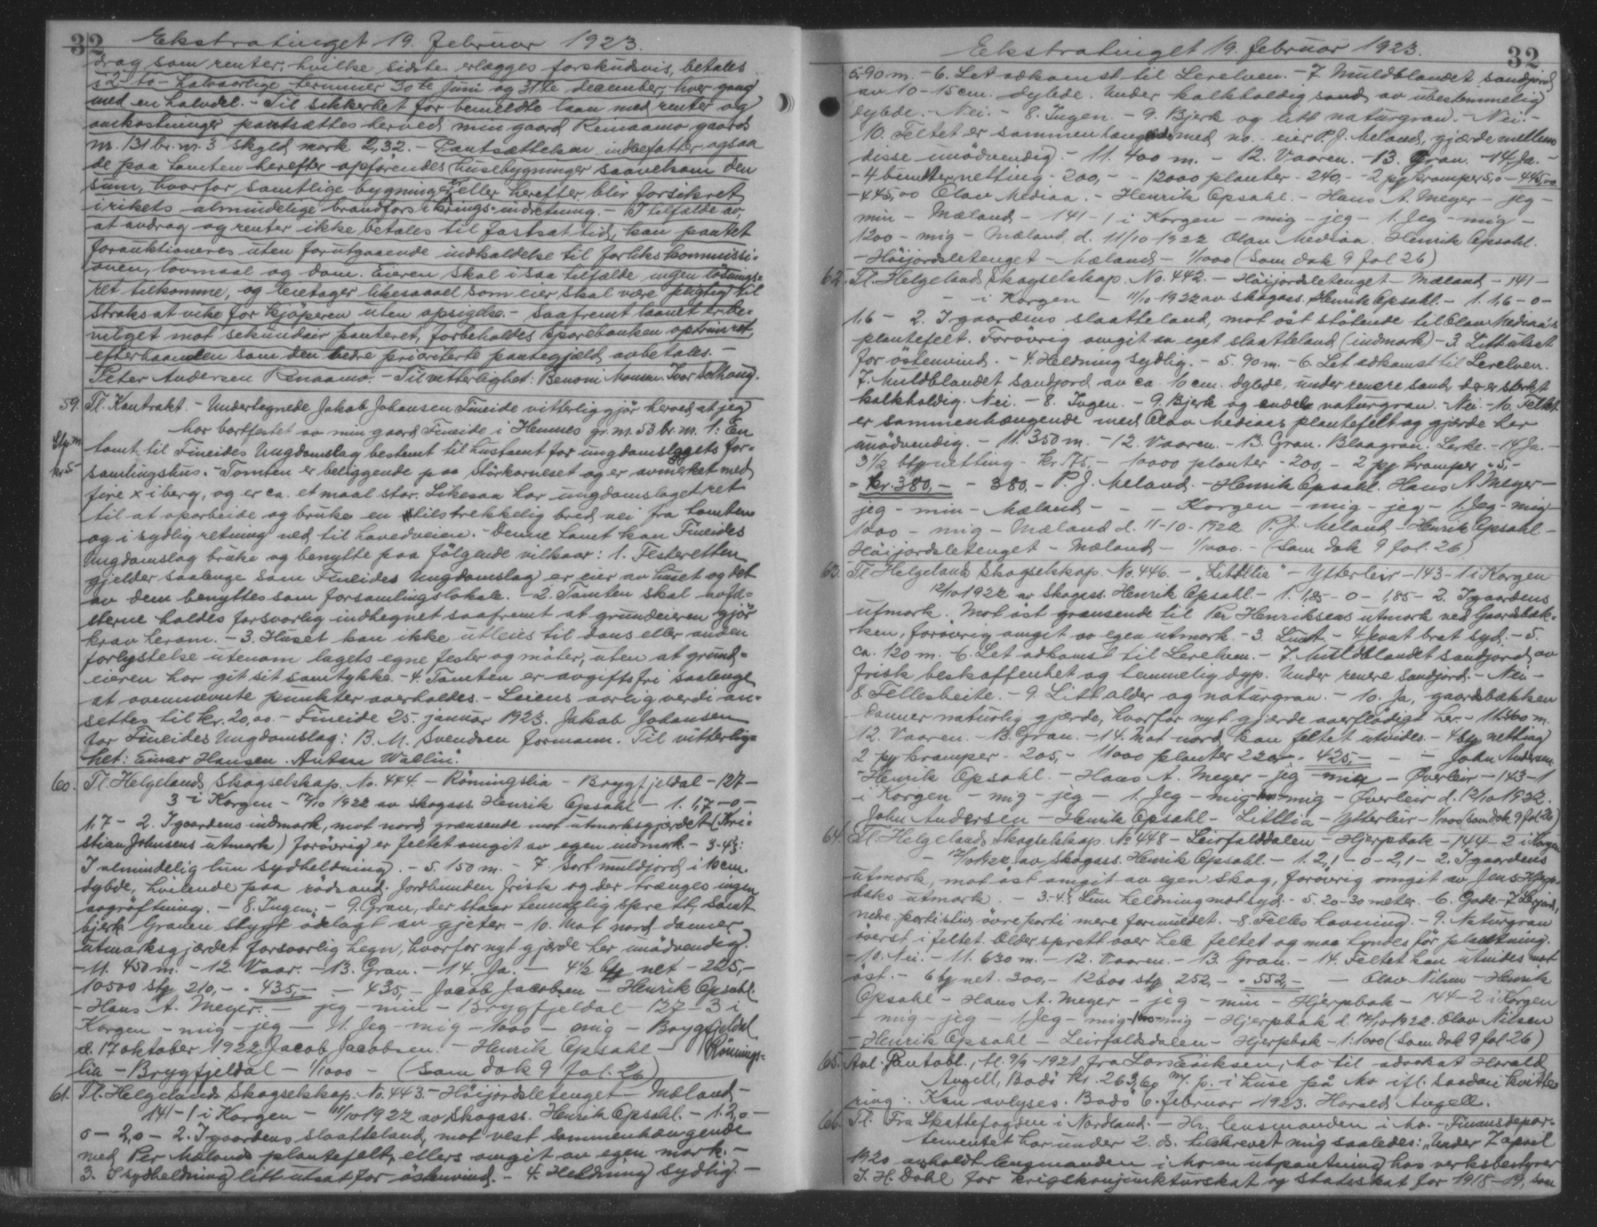 32
Ekstratinget 19. februar 1923.
drag som renter, hvilke sidste erlægges forskudsvis, betales
i 2 - to - halvaarlige terminer 30te juni og 31te december, hver gang
med en halvdel. - Til sikkerhet for bemeldte laan med renter og
omkostninger pantsættes herved min gaard Reinaamo gaards
nr. 131 br. nr. 3 skyld mark 2,32. - Pantsættelsen indbefatter ogsaa
de paa tomten herefter opførendes husebygninger saavelsom den
sum, hvorfor samtlige bygninger eller herefter blir forsikret
i rikets almindelige brandforsikrings-indretning. - I tilfælde av
at avdrag og renter ikke betales til fastsat tid, kan pantet
forauktioneres uten forutgaaende indkaldelse til forlikskommissi-
onen, lovmaal og dom. Eieren skal i saa tilfælde ingen løsnings-
ret tilkomme, og leietager likesaavel som eier skal være pligtig til
straks at vike for kjøperen uten opsigelse. - Saafremt laanet er be-
vilget mot sekundær panteret, forbeholdes sparebanken optrinsret
efterhaanden som den bedre prioriterte pantegjeld avbetales. -
Peter Andersen Reinaamo. - Til vitterlighet: Benoni Monsen Ivar Solhaug.
59. Tl. Kontrakt. - Undertegnede Jakob Johansen Fineide vitterliggjør herved, at jeg
har bortfæstet av min gaard Fineide i Hemnes gr. nr. 53 br. nr. 1: En
tomt til Fineides Ungdomslag bestemt til hustomt for ungdomslagets for-
samlingshus. - Tomten er beliggende paa Storkorneset og er avmerket med
fire x i berg, og er ca. et maal stor. Likesaa har ungdomslaget ret
til at oparbeide og bruke en tilstrekkelig bred vei fra tomten
og i sydlig retning ned til hovedveien. - Denne tomt kan Fineides
Ungdomslag bruke og benytte paa følgende vilkaar: 1. Festeretten
gjelder saalenge som Fineides Ungdomslag er eier av huset og det
av dem benyttes som forsamlingslokale. - 2. Tomten skal av fæ-
sterne holdes forsvarlig indhegnet saafremt at grundeieren gjør
krav herom. - 3. Huset kan ikke utleies til dans eller anden
forlystelse utenom lagets egne fester og møter, uten at grund-
eieren har git sit samtykke. - 4. Tomten er avgiftsfri saalenge
at ovennævnte punkter overholdes. - Leiens aarlig verdi an-
settes til kr. 20,00. - Fineide 25. januar 1923. Jakob Johansen
for Fineides Ungdomslag: B. M. Svendsen formann. Til vitterlig-
het: Einar Hansen. Anton Wallin.
60. Tl. Helgelands Skogselskap. No. 444 - Rönningslia - Brygfjeldal - 127 -
3 i Korgen - 17/10 1922 av skogass. Henrik Opsahl - 1. 1,7 - 0 -
1,7 - 2. I gaardens indmark, mot nord grænsende mot utmarksgjærdet (Kri-
stian Johnsens utmark) forøvrig er feltet omgit av egen indmark - 3-4:
I almindelig lun sydheldning. - 5. 150 m. 7. Sort muldjord i 10 cm.
dybde, hvilende paa rød sand. Jordbunden frisk og der trænges ingen
avgrøftning. - 8. Ingen. - 9. Gran, der staar temmelig spre tt, samt
bjerk. Granen stygt ødelagt av gjeter. - 10. Mot nord danner
utmarksgjærdet forsvarlig hegn, hvorfor nyt gjærde her unødvendig.
- 11. 450 m. - 12. Vaar. - 13. Gran. - 14. Ja. - 4½ net - 225,-
10500 stk. 210,- - 435,- - 435,- Jacob Jacobsen - Henrik Opsahl.
- Hans A. Meyer. - jeg - min - Brygfjeldal 127 - 3 i
Korgen - mig - jeg - 1. Jeg - mig - 1000 - mig - Brygfjeldal
d. 17 oktober 1922. Jacob Jacobsen. - Henrik Opsahl - Rönnings-
lia - Brygfjeldal - 1/1000 - (Som dok 9 fol. 26)
61. Tl. Helgelands Skogselskap. No. 443 - Höijordsletenget - Mæland -
141 - 1 i Korgen - 11/10 1922 av skogass. Henrik Opsahl. - 1. 2,0 -
0 - 2,0 - 2. I gaardens slaatteland, mot vest sammenhængende
med Per Mælands plantefelt, ellers omgit av egen mark. -
3. I sydheldning litt utsat for østenvind. - 4. Heldning sydlig -
Stp. m.
kr. 5 -
Ekstratinget 19. februar 1923.
32
5. 90 m. - 6. Let adkomst til Lerelven. - 7. Muldblandet sandjord
av 10 - 15 cm. dybde. Under kalkholdig sand av ubestemmelig
dybde. - Nei. - 8. Ingen. - 9. Bjerk og litt naturgran. - Nei. -
10. Feltet er sammenhængende med no. eier P. J. Meland, gjærde mellem
disse unødvendig. - 11. 400 m. - 12. Vaaren. - 13. Gran. - 14. Ja. -
- 4 bundter netting - 200,- - 12000 planter - 240,- - 2 pj kramper 5,0 - 445,00
- 445,00 Olav Mediaa. - Henrik Opsahl. - Hans A. Meyer - jeg -
min - Mæland - 141 - 1 i Korgen - mig - jeg - 1. Jeg - mig -
1200 - mig - Mæland d. 11/10 1922 Olav Mediaa. Henrik Opsahl.
- Höijordsletenget - Mæland - 1/1000 (Som dok 9 fol 26)
62. Tl. Helgelands Skogselskap. No. 442 - Höijordsletenget - Mæland - 141 -
- i Korgen - 11/10 1922 av skogass. Henrik Opsahl. - 1. 1,6 - 0 -
1,6 - 2. I gaardens slaatteland, mot øst støtende til Olav Mediaa's
plantefelt. Forøvrig omgit av eget slaatteland (indmark) - 3. Litt utsat
for østenvind. - 4. Heldning sydlig. - 5. 90 m. - 6. Let adkomst til Lerelven.
7. Muldblandet sandjord av ca. 10 cm. dybde, under renere sand, der er sterkt
kalkholdig. Nei. - 8. Ingen. - 9. Bjerk og endel naturgran. - Nei. - 10. Feltet
er sammenhængende med Olav Mediaas plantefelt og gjærde her
unødvendig. - 11. 350 m. - 12. Vaaren. - 13. Gran. Blaagran. Lerke. - 14. Ja. -
3½ netting - kr. 175,- - 10000 planter - 200,- - 2 pj kramper - 5,-
- kr. 380,- - 380,- P. J. Meland. - Henrik Opsahl. Hans A. Meyer -
jeg - min - Mæland - - Korgen - mig - jeg - 1. Jeg - mig -
1000 - mig - Mæland d. 11-10-1922 P. J. Meland - Henrik Opsahl -
Höijordsletenget - Mæland - 1/1000. - (Som dok 9 fol. 26)
63. Tl. Helgelands Skogselskap. No. 446. - "Littllia" - Ytterleir - 143 - 1 i Korgen
12/10 1922 av skogass. Henrik Opsahl - 1. 1,85 - 0 - 1,85 - 2. I gaardens
utmark. Mot øst grænsende til Per Henriksens utmark ved Gaardsbæk-
ken, forøvrig omgit av egen utmark. - 3. Lunt - 4. brat syd. - 5.
ca. 120 m. - 6. Let adkomst til Lerelven. - 7. Muldblandet sandjord av
frisk beskaffenhet og temmelig dyp. Under renere sandjord. - Nei -
8. Fellesbeite. - 9. Litt alder og naturgran. - 10. Ja, gaardsbækken
danner naturlig gjærde, hvorfor nyt gjærde overflødigt her - 11. 400 m.
12. Vaaren. - 13. Gran. - 14. Mot nord kan feltet utvides - 4 netting
2 pj kramper - 205,- 11000 planter 220,- - 425,- - John Andersen
- Henrik Opsahl. - Hans A. Meyer - jeg - min - Øverleir - 143 - 1
i Korgen - mig - jeg - 1. Jeg - mig - mig - Øverleir d. 12/10 1922.
John Andersen - Henrik Opsahl - Littllia - Ytterleir - 1/1000 (som dok 9 fol 26)
64. Tl. Helgelands Skogselskap No 448 - Leirfalddalen - Hjerpbak - 144 - 2 i Korgen
- av skogass. Henrik Opsahl. - 1. 2,1 - 0 - 2,1 - 2. I gaardens
utmark, mot øst omgit av egen skog, forøvrig omgit av Jens Hjerp-
baks utmark. - 3-4: Lun heldning mot syd. - 5. 20-30 meter. - 6. Gode. - 7.
nedre parti, øvre parti mere formuldet. - 8. Felles havning. - 9. Naturgran
øverst i feltet. Oldersprett over hele feltet og maa tyndes før plantning.
- 10. Nei. - 11. 630 m. - 12. Vaaren. - 13. Gran. - 14. Feltet kan utvides mot
øst. - 6 net. 300,- 12600 stk 252,- - 552,- - Olav Nilsen - Henrik
Opsahl - Hans A. Meyer - jeg - min - Hjerpbak - 144 - 2 i Korgen
- mig - jeg - 1. Jeg - mig - mig - Hjerpbak d. 1922. Olav Nilsen
- Henrik Opsahl - Leirfalddalen - Hjerpbak - 1:1000 (som dok 9 fol 26)
65. Avl. Pantobl., tl. 9/9 - 1921 fra Lars Eriksen, Mo til advokat Harald
Angell, Bodö kr. 263,60 m/ p. i huse på Mo ifl. saadan kvitte-
ring. Kan avlyses. Bodö 6. februar 1923. Harald Angell.
66. Tl. Fra Skattefogden i Nordland. - Hr. lensmanden i Mo. - Finansdepar-
tementet har under 2. ds. tilskrevet mig saaledes: "Under 7 april
1920 avholdt lensmanden i Mo en utpantning hos verksbestyrer
J. H. Dahl for krigskonjunkturskat og statsskat for 1918-19, som